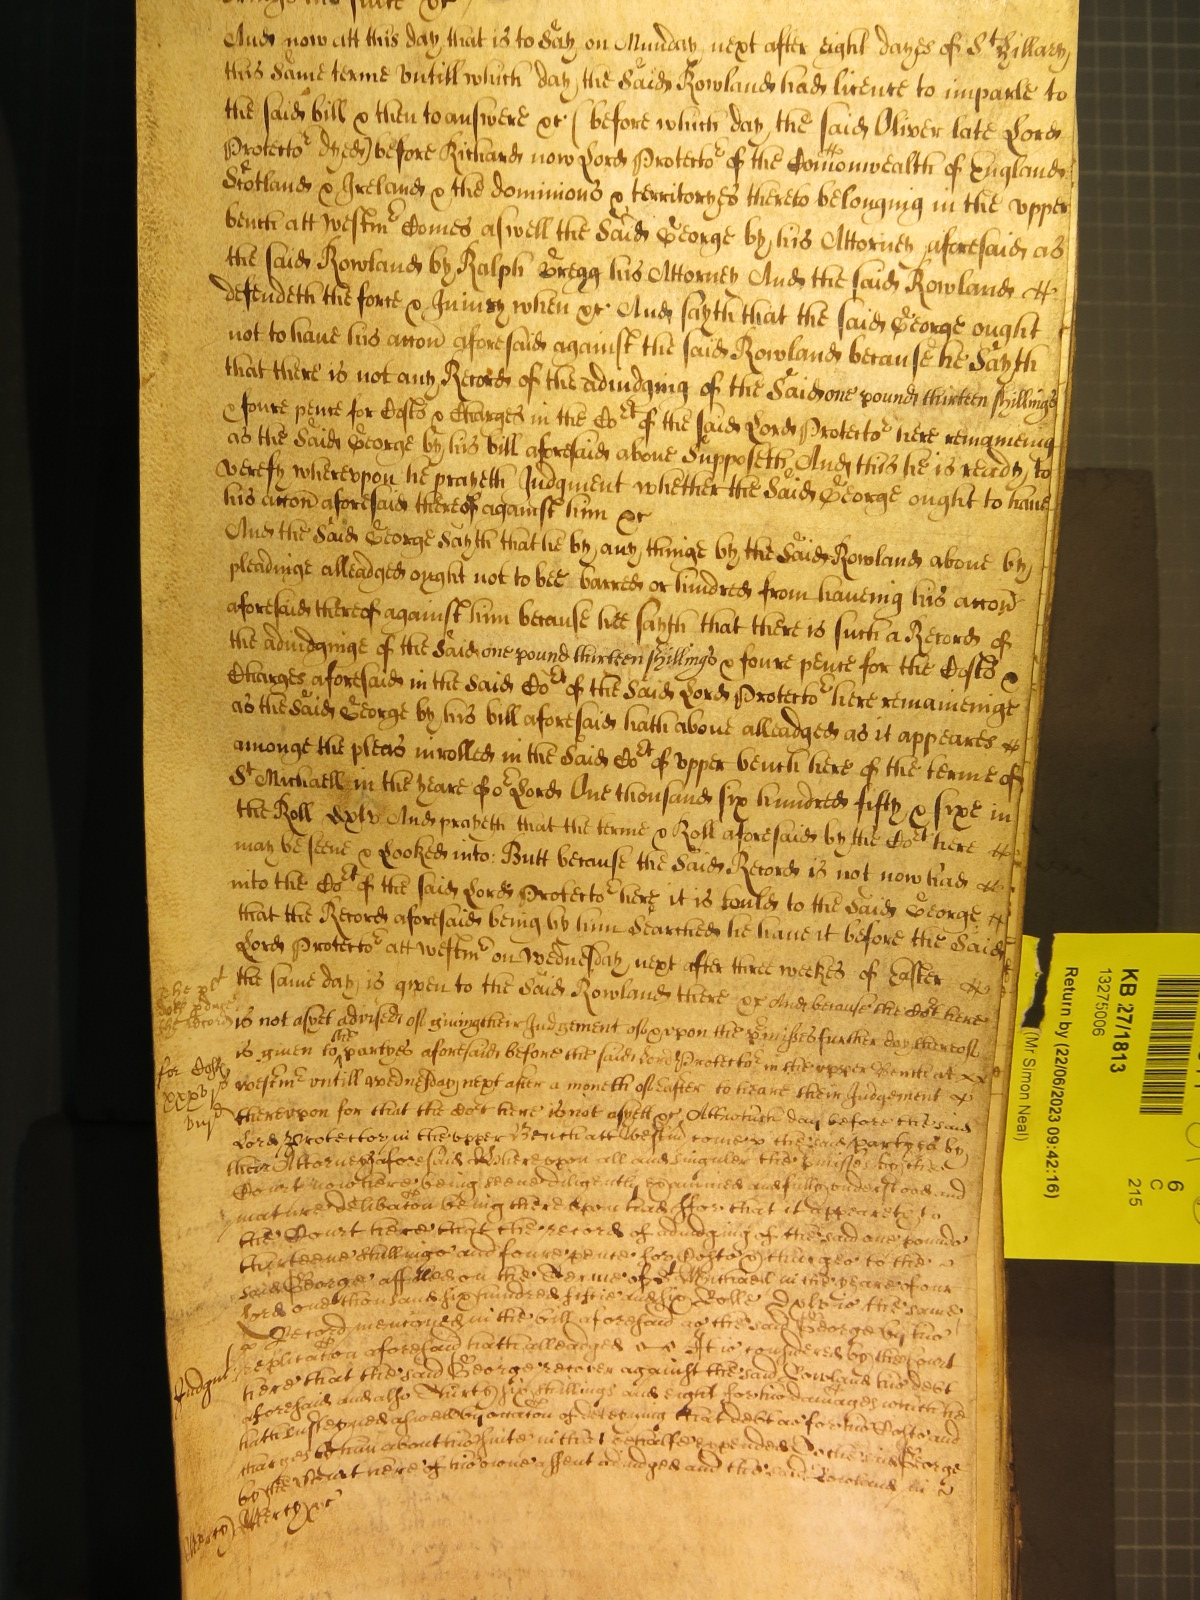 And now att this day that is to say on Munday next after eight dayes of St Hillary
this same terme untill which day the said Rowland had licence to imparle to
the said bill & then to answere &c (before which day the said Oliver late Lord
Protector dyed) before Richard now Lord Protector of the Comonwealth of England
Scotland & Ireland & the dominions & territoryes thereto belonging in the upper
bench att Westmr Comes aswell the said George by his Attorney aforesaid as
the said Rowland by Ralph Gregg his Attorney And the said Rowland
defendeth the force & Iniury when &c And sayth that the said George ought
not to have his accon aforesaid against the said Rowland because he sayth
that there is not any Record of the adiudging of the said one pound thirteen shillings
& foure pence for Costs & Charges in the Cort of the said Lord Protector here remaineing
as the said George by his bill aforesaid above supposeth And this he is ready to
verefy whereupon he prayeth Iudgment whether the said George ought to have
his accon aforesaid thereof against him &c
And the said George sayth that he by any thinge by the said Rowland above by
pleadinge alleadged ought not to bee barred or hindred from haveing his accon
aforesaid thereof against him because hee sayth that there is such a Record of
the adiudginge of the said one pound thirteen shillings & foure pence for the Costs &
Charges aforesaid in the said Cort of the said Lord Protector here remaineinge
as the said George by his bill aforesaid hath above alleadged as it appeares
amonge the pleas inrolled in the said Cort of upper bench here of the terme of
St Michaell in the yeare of or Lord One thousand six hundred fifty & sixe in
the Roll Dxlv And prayeth that the terme & Roll aforesaid by the Cort here
may be seene & Looked into: Butt because the said Record is not now had
into the Cort of the said Lord Protector here it is tould to the said George
that the Record aforesaid being by him Searched he have it before the said
Lord Protector att westmr on Wednesday next after three weekes of Easter
the same day is given to the said Rowland there &c And because the Cort here
The plt
the record
is not asyet advised of giving their Judgement of & upon the premisses further day thereof
is given to the partyes aforesaid before the said Lord Protector in the upper Bench at
for Costs
xxxvj s
viij d
Westmr untill Wednesday next after a moneth of easter to heare their Judgement
thereupon for that the Cort here is not asyett &c Att which day before the said
Lord Protector in the upper Bench att Westmr come the said partyes by
their Attorneys aforesaid Whereupon all and singuler the premisses by the
Court now here being seene diligently examined and fully understood and
mature deliberacon being thereupon had ffor that it appeareth to
the Court here that the record of adiudging of the said one pound
thirteene shillings and foure pence for Costs & charges to the
said George affiled on the Terme of St Michaell in the yeare of our
Lord one thousand six hundred fiftie and six Rolle Dxlv is the same
Record mencioned in the bill aforesaid as the said George by his
replicacon aforesaid hath alleadged It is considered by the Court
Judgmt
here that the said George recover against the said Rowland his debt
aforesaid and also thirty six shillings and eight for his damages which he
hath susteyned aswell by occacon of deteyning that debt as for his Costs and
charges by him about his suite in that behalfe expended to the said George
by the Court here of his owne assent adiudged and the said Rowland in
Mercy Mercy &c
KB 27/1813
13275006
Return by (22/06/2023 09:42:16)
(Mr Simon Neal)
6
C
215